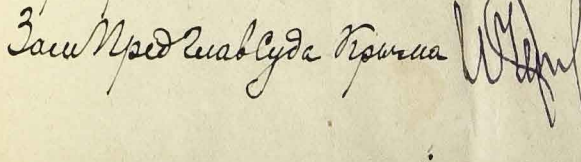 Зам Пред Глав Суда Крыма